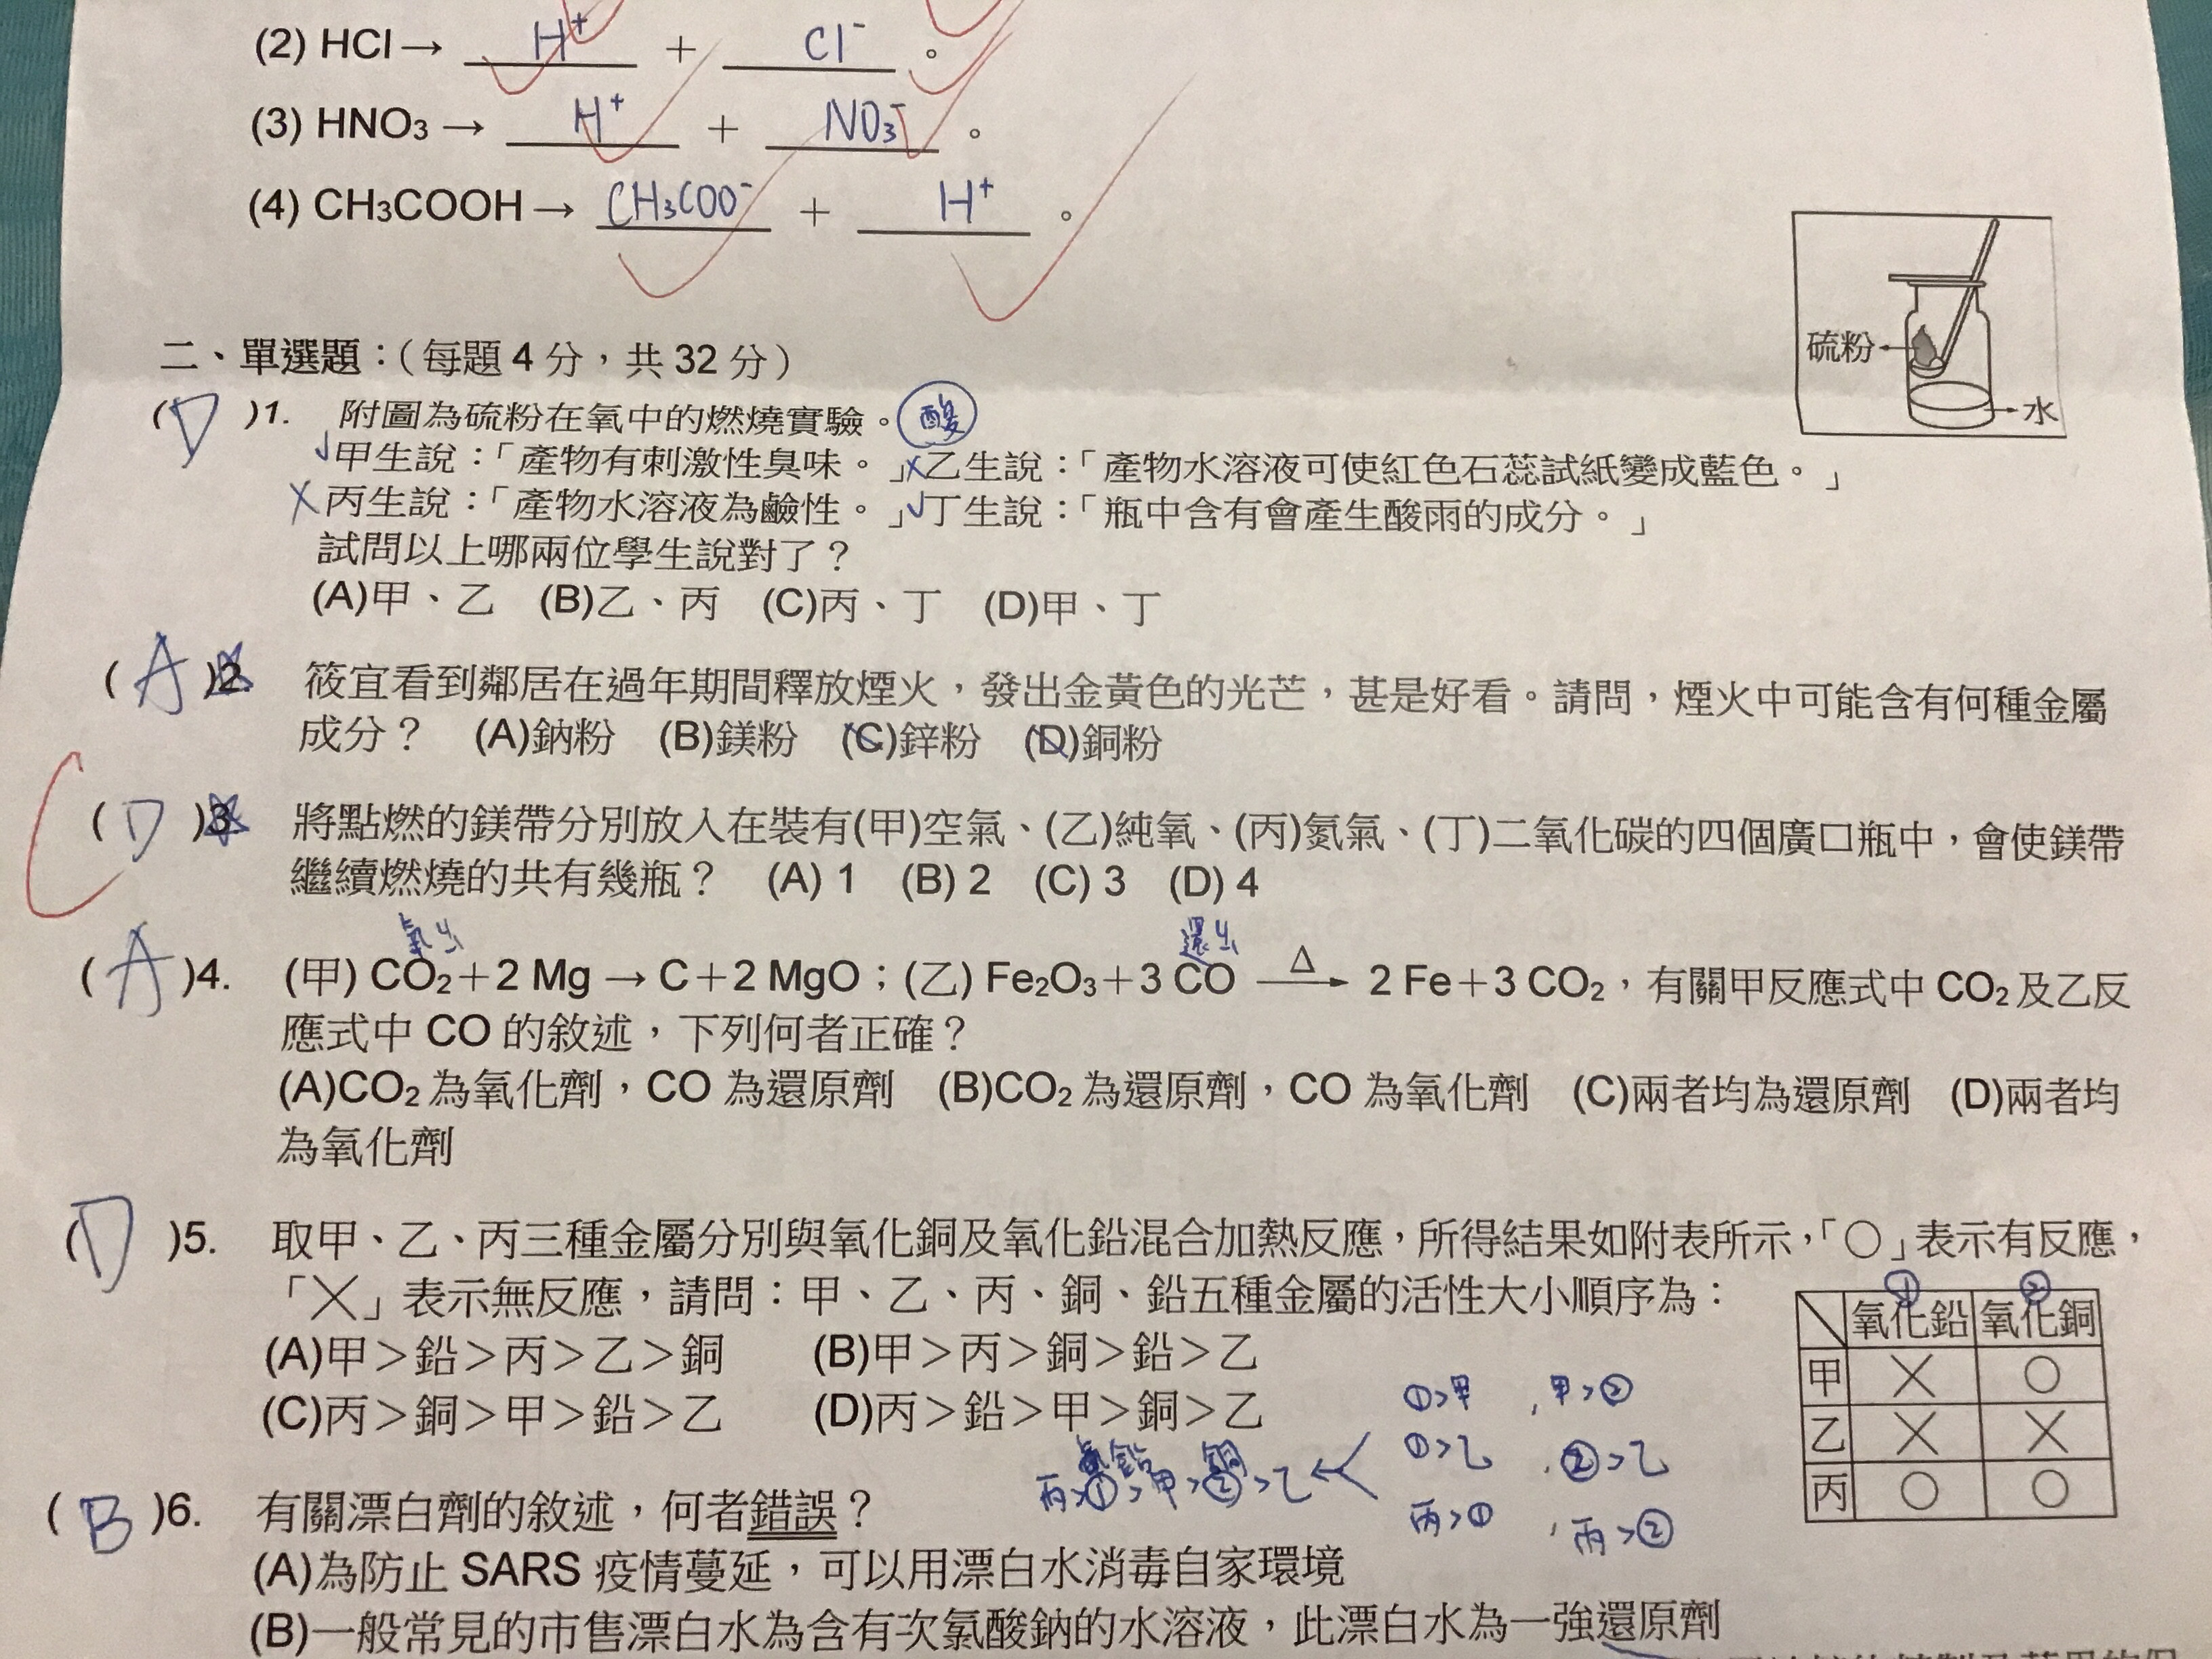 (2) HCl→ H⁺ + Cl⁻ 。
(3) HNO₃→ H⁺ + NO₃⁻ 。
(4) CH₃COOH→ CH₃COO⁻ + H⁺ 。
硫粉
水
二、單選題：（每題 4 分，共 32 分）
( D )1. 附圖為硫粉在氧中的燃燒實驗。 酸
✓甲生說：「產物有刺激性臭味。」×乙生說：「產物水溶液可使紅色石蕊試紙變成藍色。」
×丙生說：「產物水溶液為鹼性。」✓丁生說：「瓶中含有會產生酸雨的成分。」
試問以上哪兩位學生說對了？
(A)甲、乙 (B)乙、丙 (C)丙、丁 (D)甲、丁
( A )2. 筱宜看到鄰居在過年期間釋放煙火，發出金黃色的光芒，甚是好看。請問，煙火中可能含有何種金屬
成分？ (A)鈉粉 (B)鎂粉 (C)鋅粉 (D)銅粉
( D )3. 將點燃的鎂帶分別放入在裝有(甲)空氣、(乙)純氧、(丙)氮氣、(丁)二氧化碳的四個廣口瓶中，會使鎂帶
繼續燃燒的共有幾瓶？ (A) 1 (B) 2 (C) 3 (D) 4
( A )4. (甲) CO₂＋2 Mg → C＋2 MgO；(乙) Fe₂O₃＋3 CO —Δ→ 2 Fe＋3 CO₂，有關甲反應式中 CO₂及乙反
應式中 CO 的敘述，下列何者正確？
(A)CO₂為氧化劑，CO 為還原劑 (B)CO₂為還原劑，CO 為氧化劑 (C)兩者均為還原劑 (D)兩者均
為氧化劑
( D )5. 取甲、乙、丙三種金屬分別與氧化銅及氧化鉛混合加熱反應，所得結果如附表所示，「○」表示有反應，
「╳」表示無反應，請問：甲、乙、丙、銅、鉛五種金屬的活性大小順序為：
(A)甲＞鉛＞丙＞乙＞銅 (B)甲＞丙＞銅＞鉛＞乙
(C)丙＞銅＞甲＞鉛＞乙 (D)丙＞鉛＞甲＞銅＞乙
① ②
氧化鉛 氧化銅
甲 ╳ ○
乙 ╳ ╳
丙 ○ ○
①>甲 , 甲>②
①>乙 , ②>乙
丙>① , 丙>②
鉛 銅
丙>①>甲>②>乙
( B )6. 有關漂白劑的敘述，何者錯誤？
(A)為防止 SARS 疫情蔓延，可以用漂白水消毒自家環境
(B)一般常見的市售漂白水為含有次氯酸鈉的水溶液，此漂白水為一強還原劑